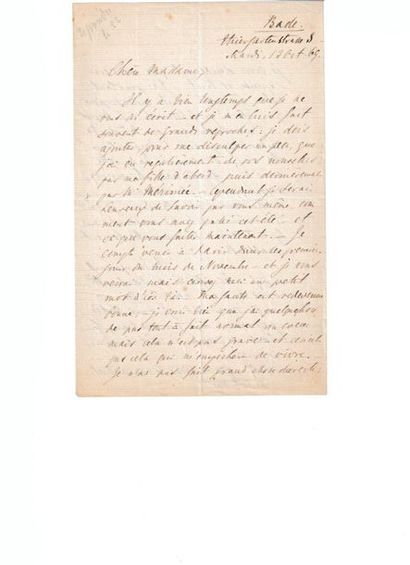 Bade.
Thiergartenstrasse 3
Mardi, 13 Oct. 69.
Chère Madame,
Il y a bien longtemps que je ne
vous ai écrit – et je m'en suis fait
souvent de grands reproches: je dois
ajouter, pour me disculper un peu, que
j'ai eu régulièrement de vos nouvelles
par ma fille d'abord – puis dernièrement
par Mr Mérimée – cependant je serai
heureux de savoir par vous même com
ment vous avez passé cet été – et
ce que vous faites maintenant. – Je
compte venir à Paris dans les premiers
jours du mois de Novembre – et je vous
verrai – mais envoyez moi un petit
mot d'ici là. Ma santé est redevenue
bonne – je crois bien que j'ai quelque chose
de pas tout à fait normal au cœur
mais cela n'est pas grave – et ce n'est
pas cela qui m'empêchera de vivre.
Je n'ai pas fait grand chose